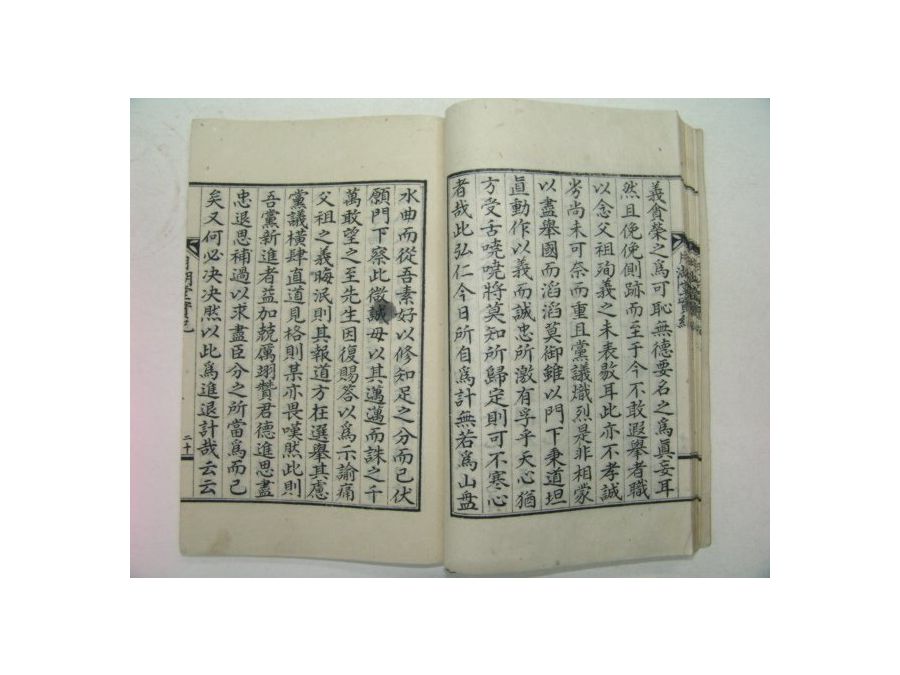 義貪榮之爲可恥無德要名之爲眞妄耳
然且俛俛側跡而至于今不敢遐舉者職
以念父祖殉義之未表敭耳此亦不孝誠
劣尚未可奈而重且黨議熾烈是非相蒙
以盡舉國而滔滔莫御雖以門下秉道坦
直動作以義而誠忠所激有孚乎天心猶
方受古嘵嘵將莫知所歸定則可不寒心
者哉此弘仁今日所自爲計無若爲山盤
水曲而從吾素好以修知足之分而已伏
願門下察此微誠毋以其邁邁而誅之千
萬敢望之至先生因復賜答以爲示諭痛
父祖之義晦泯則其報道方在選舉其慮
黨議橫肆直道見格則某亦畏嘆然此則
吾黨新進者益加兢厲翊贊君德進思盡
忠退思補過以求盡臣分之所當爲而已
矣又何必决决然以此爲進退計哉云云
二十